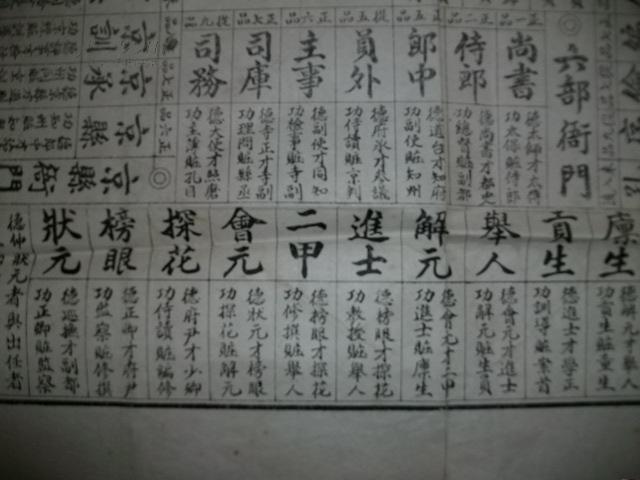 六部衙門
正一品
尚書
德太師才太傅
功太保贓侍郎
正二品
侍郎
德尚書才都史
功總督贓副都
正五品
郎中
德道台才知府
功副使贓知州
從五品
員外
德府丞才參議
功侍讀贓京判
正六品
主事
德副使才同知
功僉事贓寺副
正七品
司庫
德寺正才寺副
功理問贓縣丞
從九品
司務
德大使才照磨
功主簿贓孔目
京縣衙門
正六品
京縣
正七品
京丞
京訓
廩生
德解元才舉人
功貢生贓童生
貢生
德進士才學正
功訓導贓案首
舉人
德會元才進士
功解元贓生員
解元
德會元才二甲
功進士贓廩生
進士
德榜眼才探花
功教授贓舉人
二甲
德榜眼才探花
功修撰贓舉人
會元
德狀元才榜眼
功探花贓解元
探花
德府尹才少卿
功侍讀贓編修
榜眼
德正卿才府尹
功監察贓修撰
狀元
德巡撫才副都
功正卿贓監察
德仲狀元者與出任者